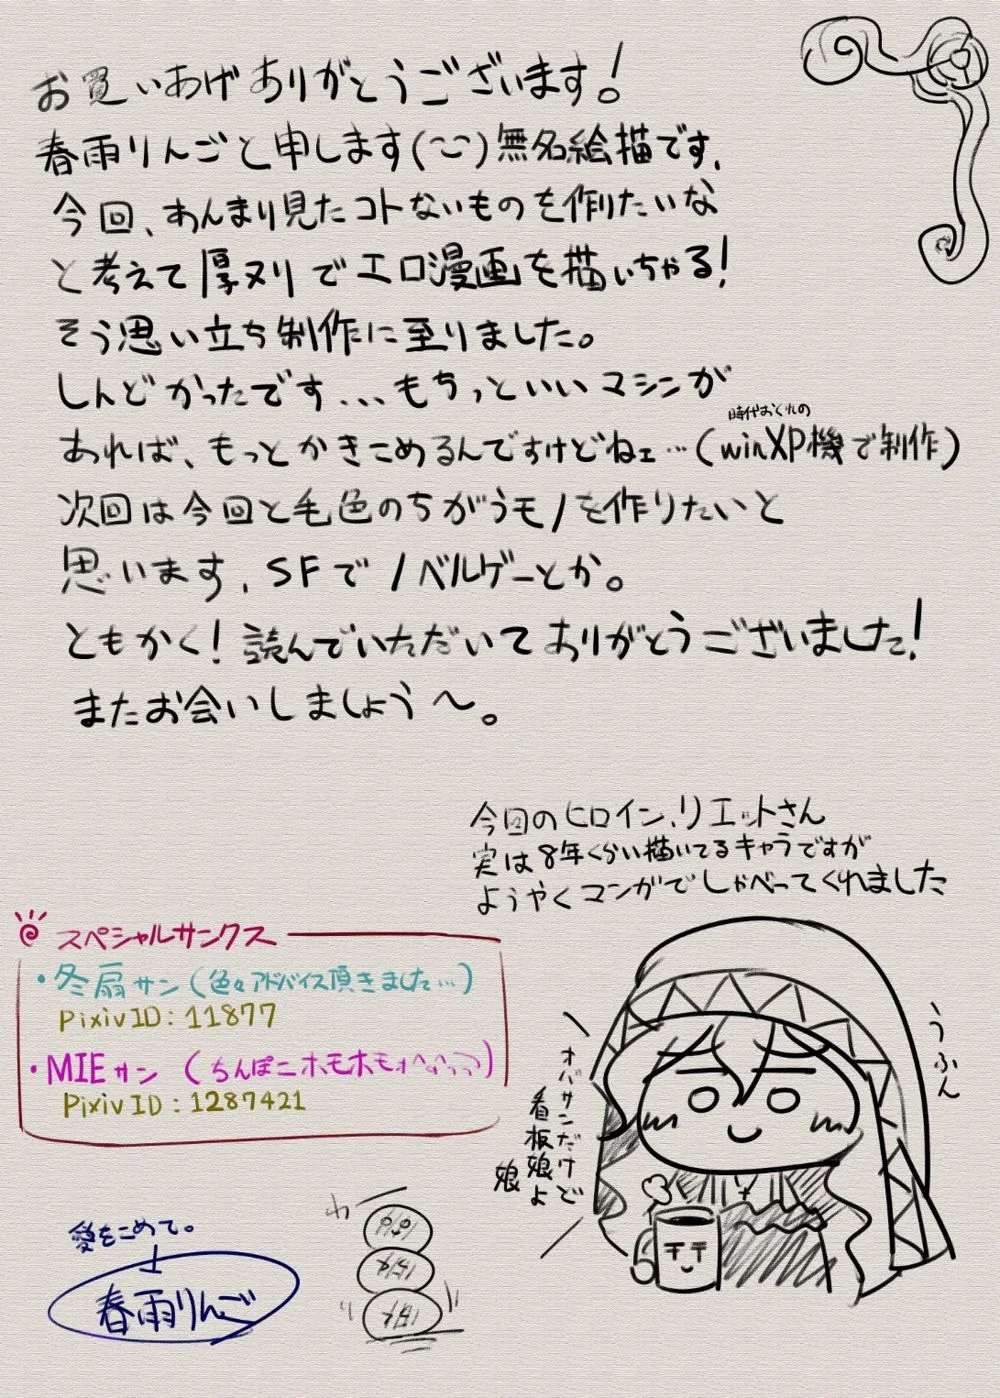 お買いあげありがとうございます!
春雨りんごと申します(~~)無名絵描です、
今回、あんまり見たコトないものを作りたいな
と考えて厚ヌリでエロ漫画を描いちゃる!
そう思い立ち制作に至りました。
しんどかったです...もちっといいマシンが
あれば、もっとかきこめるんですけどねェ…(winXP機で制作)
時代おくれの
次回は今回と毛色のちがうモノを作りたいと
思います、SFでノベルゲーとか。
ともかく!読んでいただいてありがとうございました!
またお会いしましょう〜。
今回のヒロイン、リエットさん
実は8年くらい描いてるキャラですが
ようやくマンガでしゃべってくれました
スペシャルサンクス
・冬扇サン(色々アドバイス頂きました…)
PixivID:11877
・MIEサン(ちんぽこホモホモォ
PixivID:1287421
うふん
オバサンだけど
看板娘よ
娘
愛をこめて。
春雨りんご